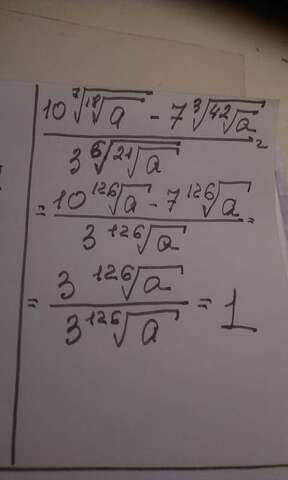 10 ⁷√(¹⁸√a) - 7 ³√(⁴²√a)
3 ⁶√(²¹√a) =
= 10 ¹²⁶√a - 7 ¹²⁶√a
3 ¹²⁶√a =
= 3 ¹²⁶√a
3 ¹²⁶√a = 1